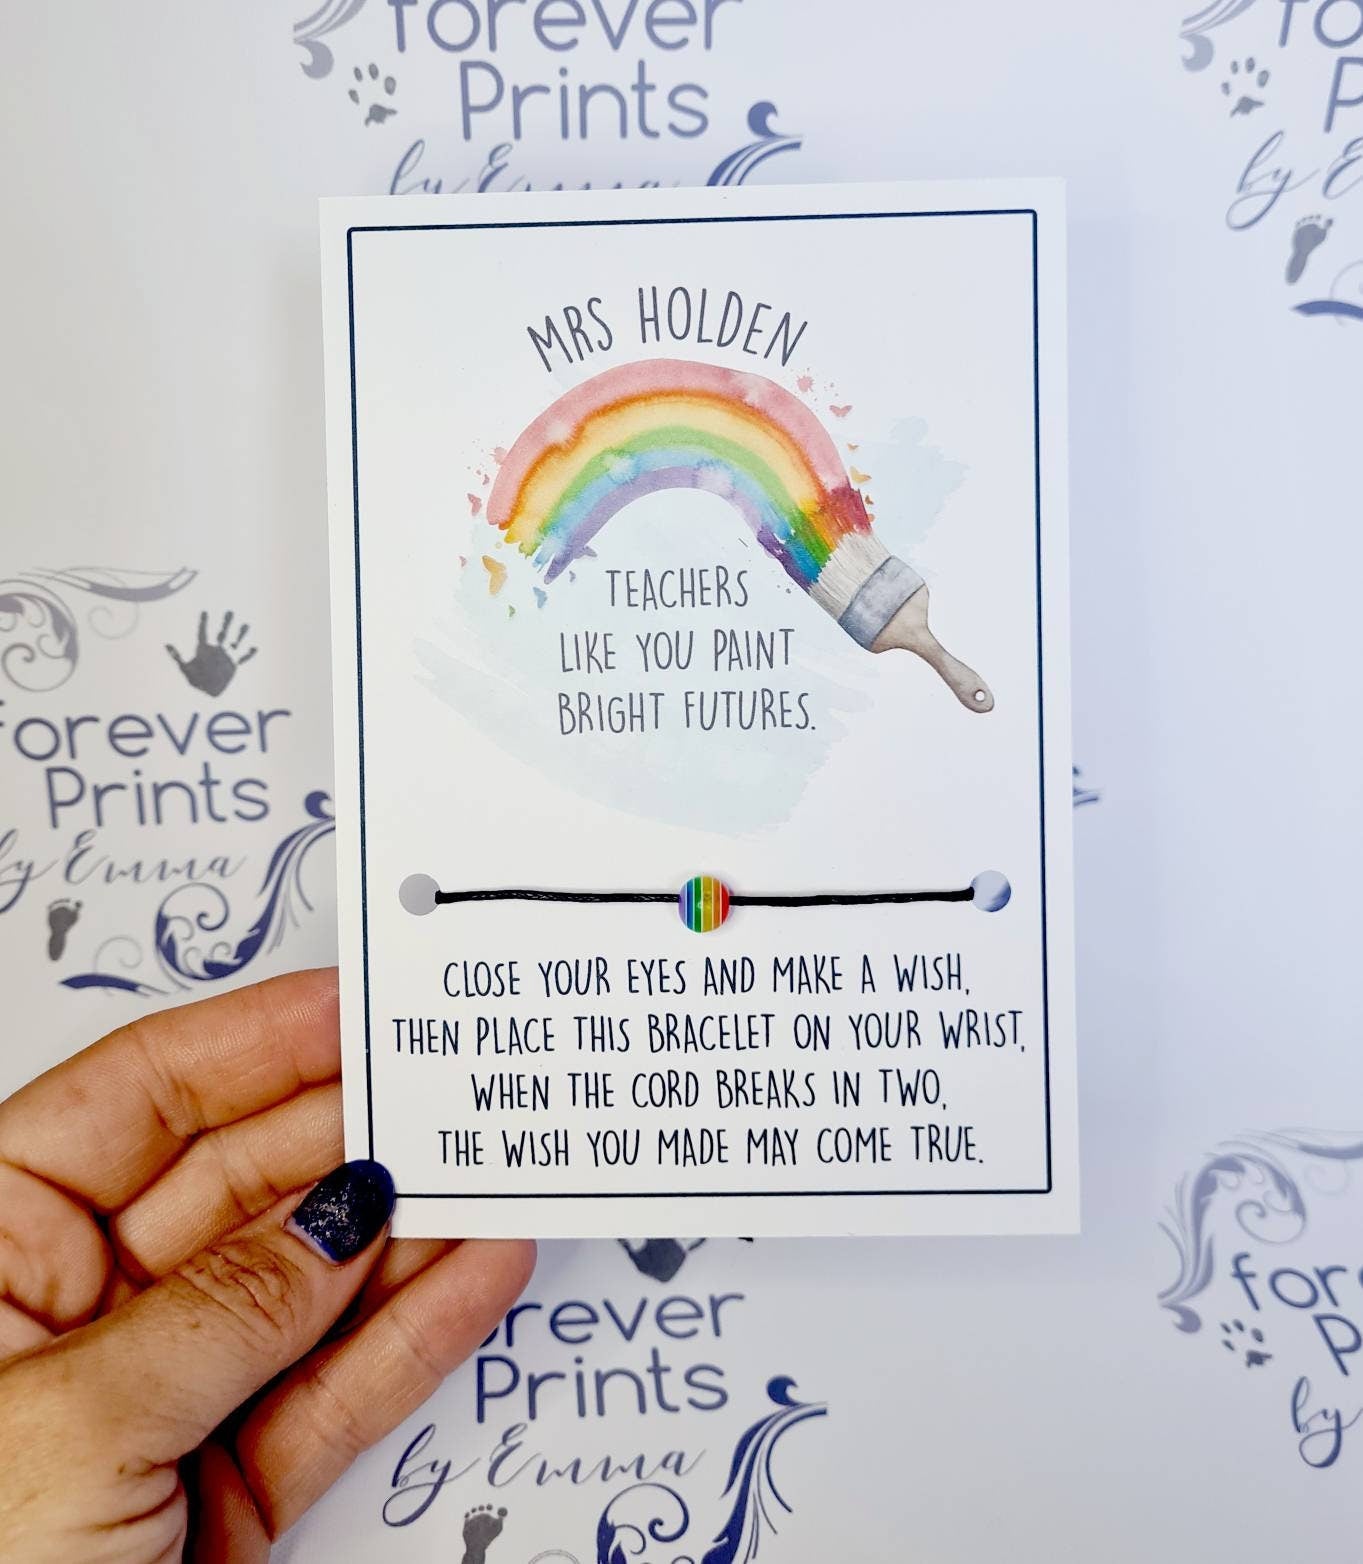 forever
Prints
by Emma
MRS HOLDEN
TEACHERS
LIKE YOU PAINT
BRIGHT FUTURES.
forever
Prints
by Emma
CLOSE YOUR EYES AND MAKE A WISH,
THEN PLACE THIS BRACELET ON YOUR WRIST,
WHEN THE CORD BREAKS IN TWO,
THE WISH YOU MADE MAY COME TRUE.
for
P
by
rever
Prints
by Emma